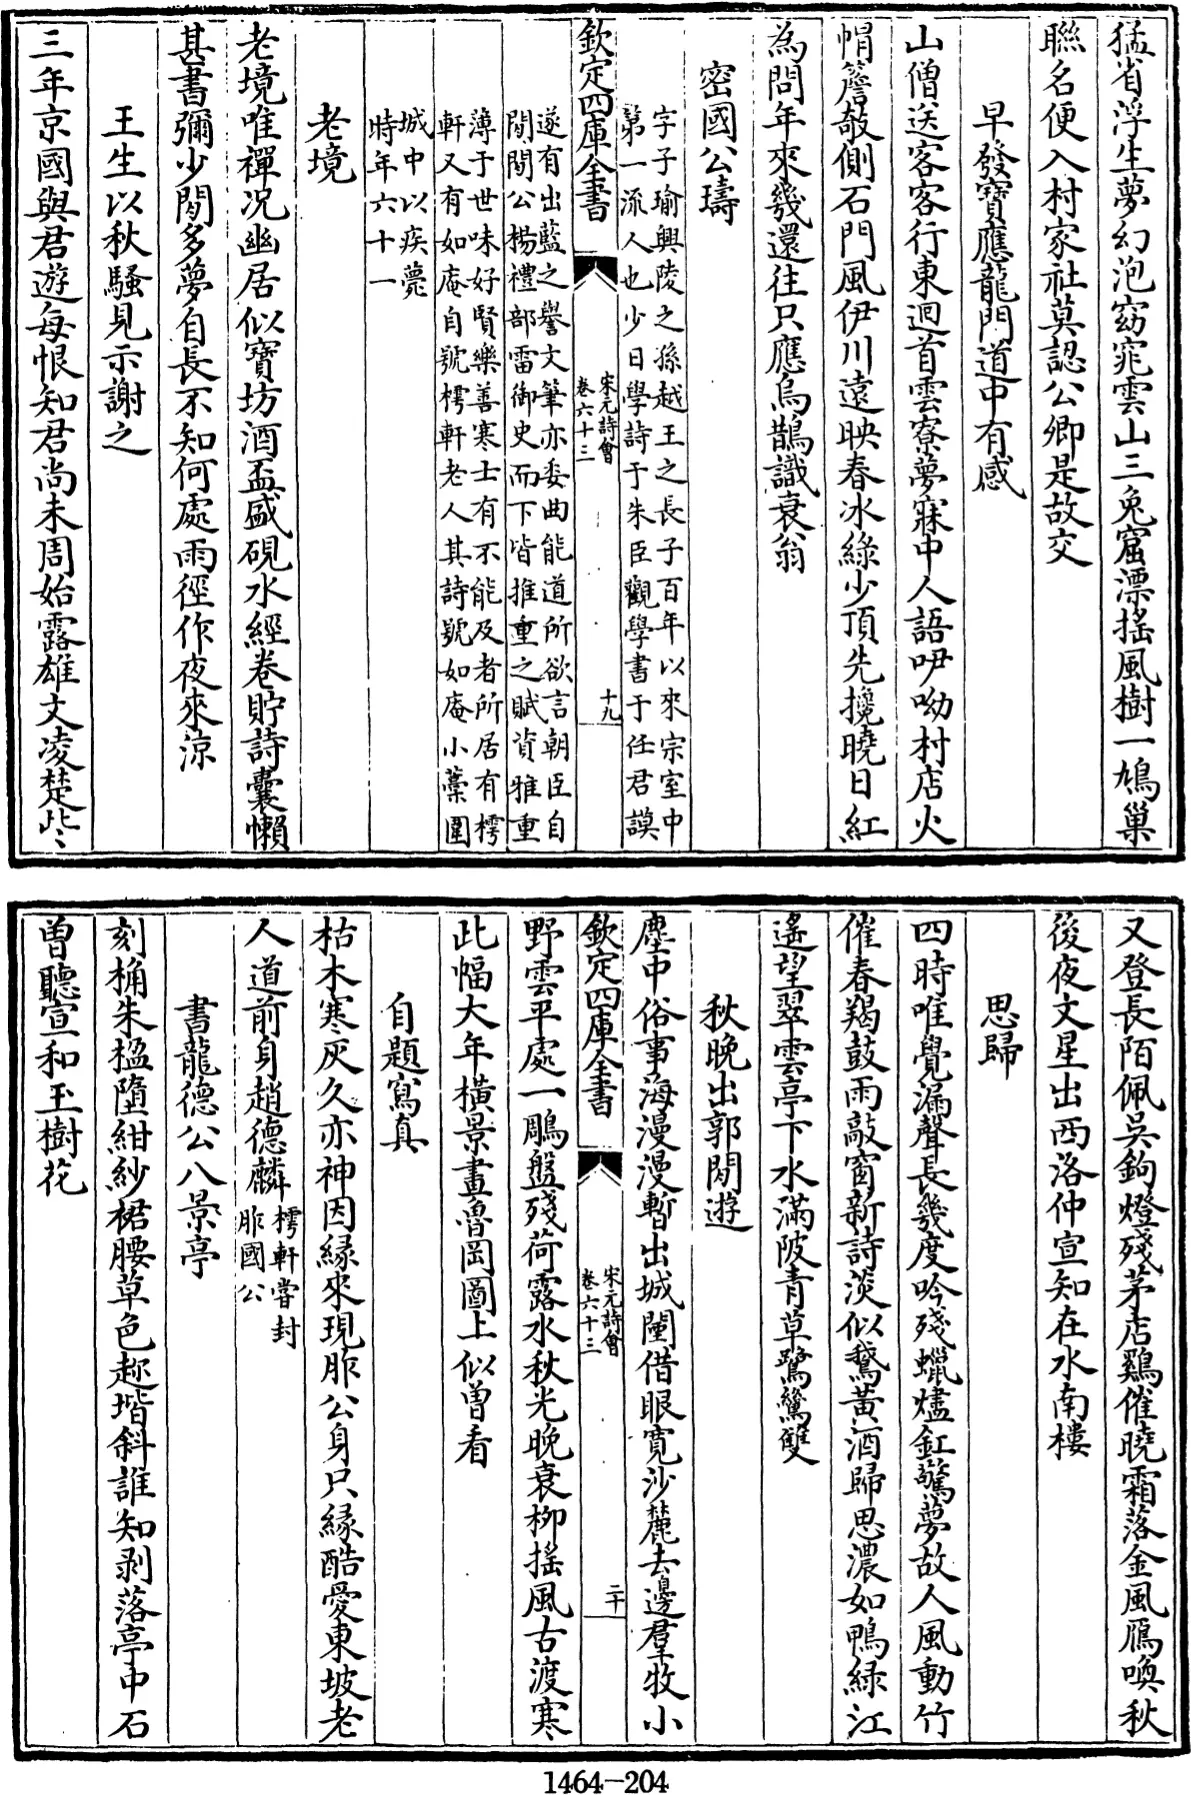 猛省浮生夢幻泡窈窕雲山三兔窟漂搖風樹一鳩巢
聯名便入村家社莫認公卿是故交
早發寶應龍門道中有感
山僧送客客行東迴首雲寮夢寐中人語咿呦村店火
帽簷攲側石門風伊川遠映春冰綠少頂先攙曉日紅
為問年來幾還往只應烏鵲識衰翁
密國公璹
字子瑜興陵之孫越王之長子百年以來宗室中
第一流人也少日學詩于朱巨觀學書于任君謨
欽定四庫全書
宋元詩會
卷六十三
十九
遂有出藍之譽文筆亦委曲能道所欲言朝臣自
閒閒公楊禮部雷御史而下皆推重之賦資雅重
薄于世味好賢樂善寒士有不能及者所居有樗
軒又有如庵自號樗軒老人其詩號如庵小藁圍
城中以疾薨
時年六十一
老境
老境唯禪况幽居似寶坊酒盃盛硯水經卷貯詩囊懶
甚書彌少閒多夢自長不知何處雨徑作夜來涼
王生以秋騷見示謝之
三年京國與君遊每恨知君尚未周始露雄文凌楚些
又登長陌佩吳鉤燈殘茅店鷄催曉霜落金風鴈喚秋
後夜文星出西洛仲宣知在水南樓
思歸
四時唯覺漏聲長幾度吟殘蠟燼釭驚夢故人風動竹
催春羯鼓雨敲窗新詩淡似鵞黃酒歸思濃如鴨緑江
遙望翠雲亭下水滿陂青草鷺鷥雙
秋晚出郭閒遊
塵中俗事海漫漫暫出城闉借眼寛沙麓去邊羣牧小
欽定四庫全書
宋元詩會
卷六十三
二十
野雲平處一鵰盤殘荷露水秋光晚衰栁搖風古渡寒
此幅大年橫景畫魯岡圖上似曾看
自題寫真
枯木寒灰久亦神因緣來現胙公身只緣酷愛東坡老
人道前身趙德麟
樗軒嘗封
胙國公
書龍德公八景亭
刻桷朱楹墮紺紗裙腰草色趂堦斜誰知剥落亭中石
曽聽宣和玉樹花
1464-204